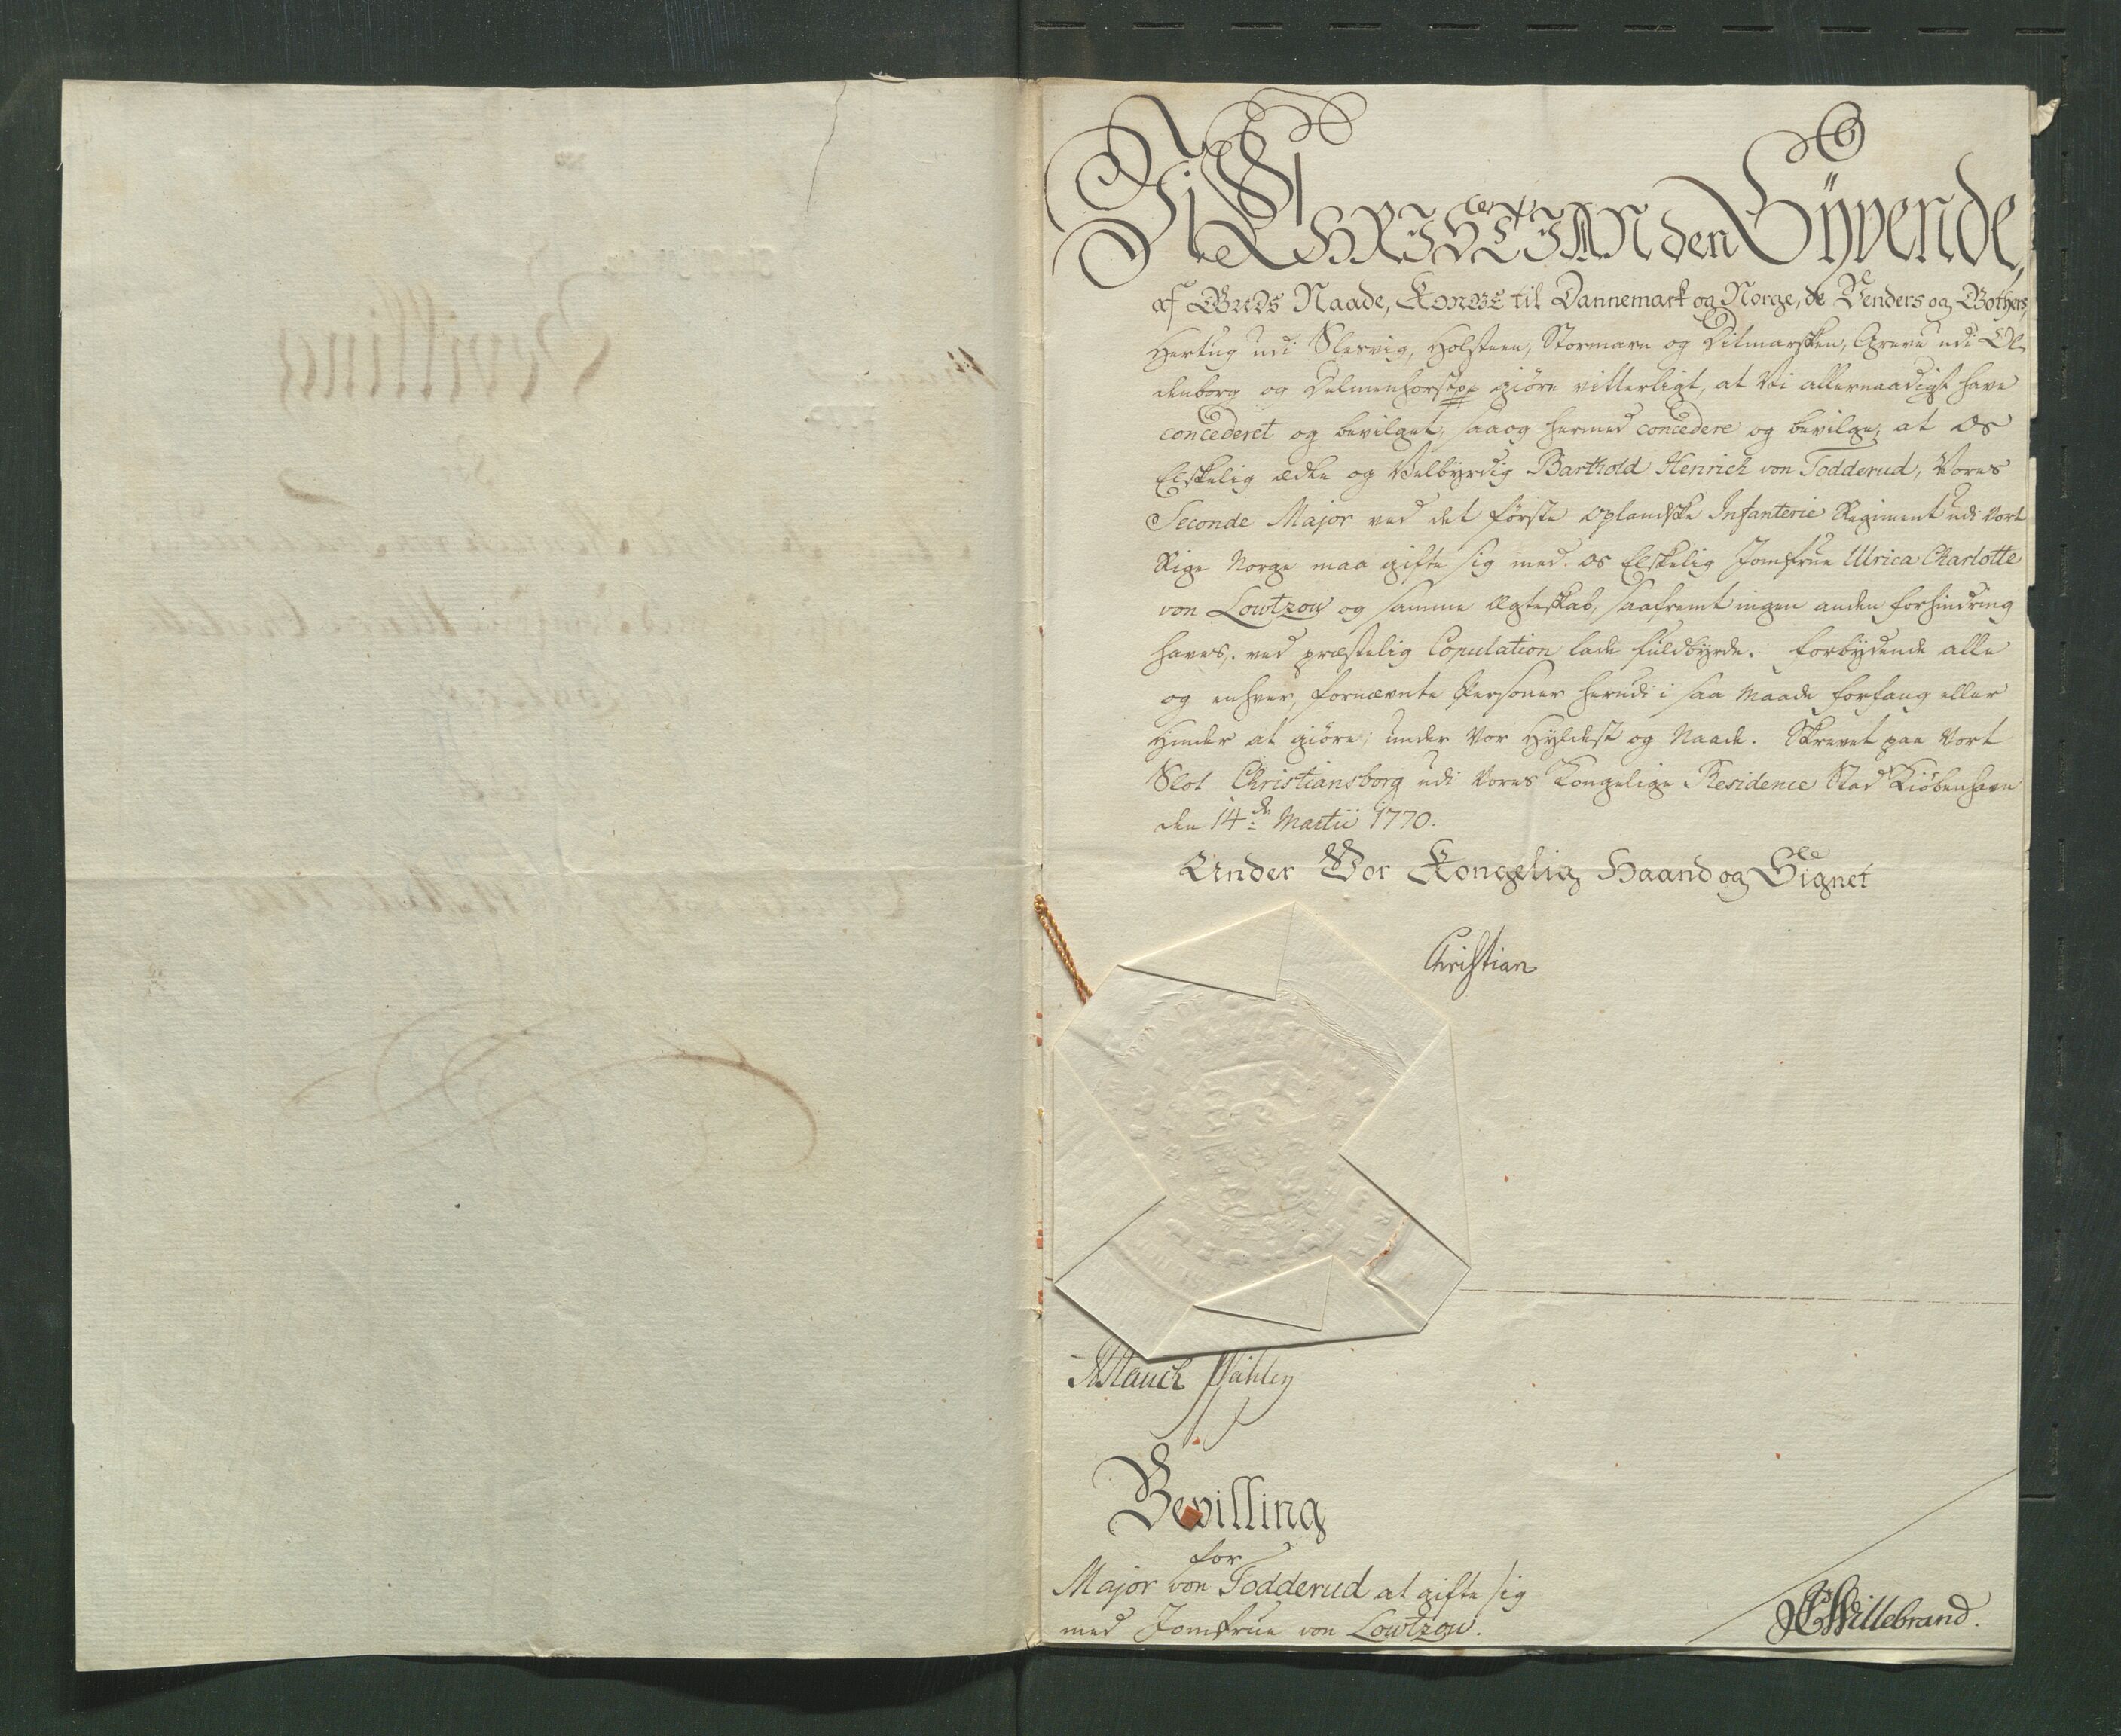 Vi CHRISTIAN den Syvende,
af GUDS Naade, KONGE til Dannemark og Norge, de Venders og Gothers,
Hertug udi Slesvig, Holsteen, Stormarn og Ditmarsken, Greve udi Ol-
denborg og Delmenhorst pp giöre vitterligt, at Vi allernaadigst have
concederet og bevilget, saa og hermed concedere og bevilge, at Os
Elskelig ædle og Velbÿrdig Barthold Henrich von Todderud, Vores
Seconde Major ved det förste Oplandske Infanterie Regiment udi Vort
Rige Norge maa gifte sig med Os Elskelig Jomfrue Ulrica Charlotte
von Lowtzow og samme Ægteskab, saafremt ingen anden forhindring
haves, ved præstelig Copulation lade fuldbÿrde. Forbydende alle
og enhver, fornævnte Personer herudi i saa Maade forfang eller
Hinder at giöre; under Vor Hyldest og Naade. Skrevet paa Vort
Slot Christiansborg udi Vores Kongelige Residence Stad Kiöbenhavn
den 14de Martii 1770.
Under Vor Kongelig Haand og Signet
Christian
Bevilling
for
Major von Todderud at gifte sig
med Jomfrue von Lowtzow.
Willebrand.